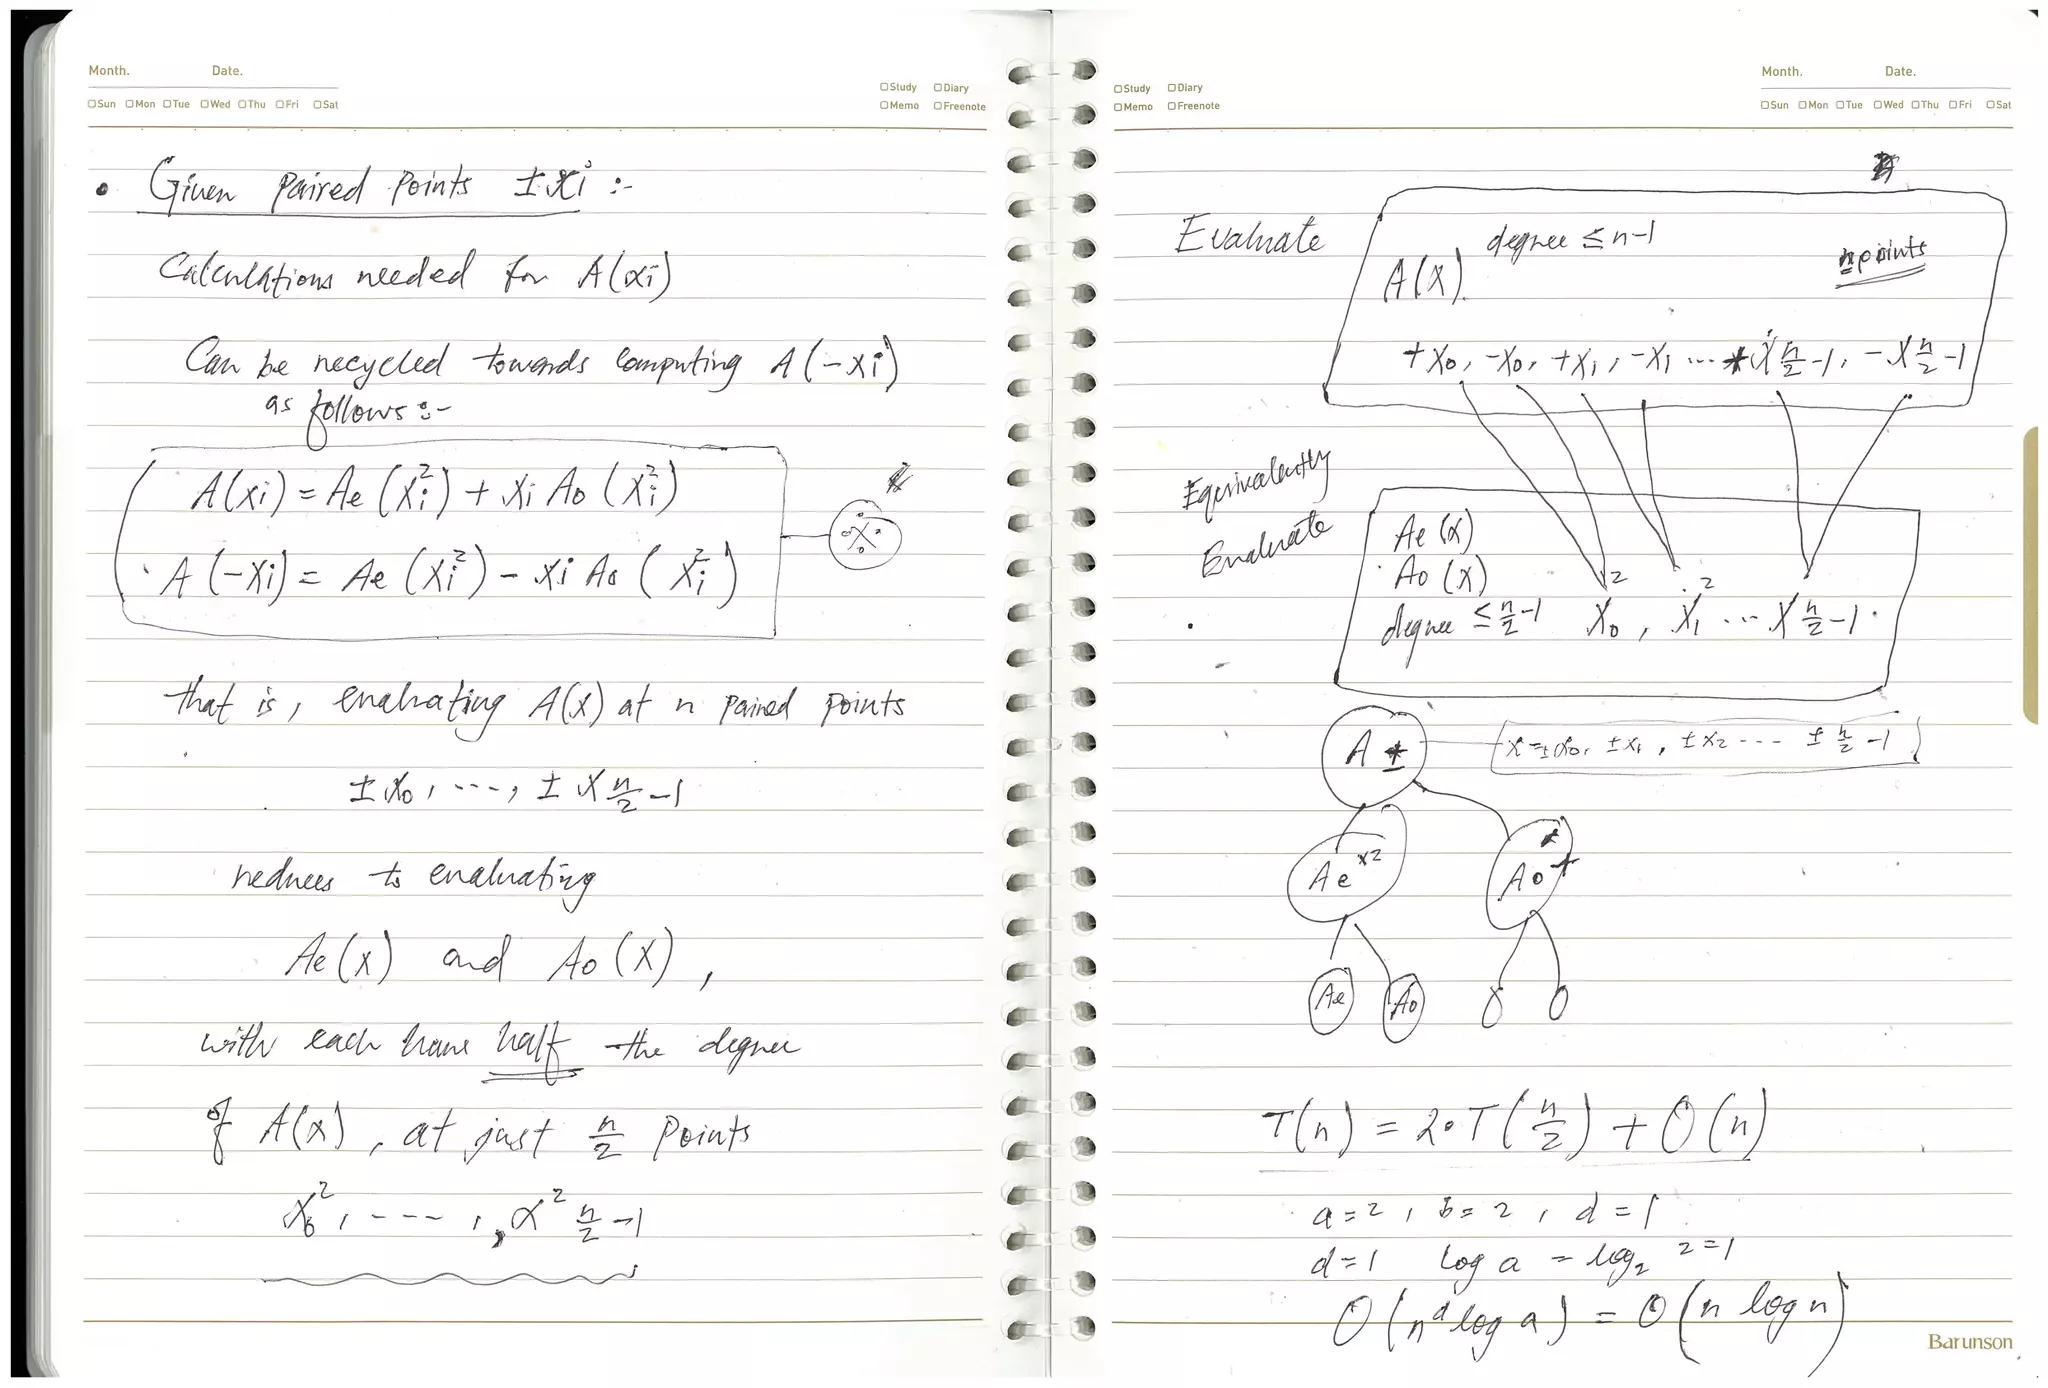 Month. Date.
□Sun □Mon □Tue □Wed □Thu □Fri □Sat
□Study □Diary
□Memo □Freenote
• Given Paired Points ± xi :-
Calculations needed for A(xi)
Can be recycled towards computing A(-xi)
as follows :-
A(xi) = Ae (xi²) + xi Ao (xi²)
A(-xi) = Ae (xi²) - xi Ao (xi²)
that is, evaluating A(x) at n paired points
± x0, ---, ± x n/2 -1
reduces to evaluating
Ae(x) and Ao(x),
with each have half the degree
of A(x), at just n/2 points
x0², ---- , x² n/2 -1
□Study □Diary
□Memo □Freenote
Month. Date.
□Sun □Mon □Tue □Wed □Thu □Fri □Sat
Evaluate
degree ≤ n-1
A(x).
n points
+x0, -x0, +x1, -x1 ... x n/2 -1, -x n/2 -1
Equivalently
Evaluate
Ae (x)
Ao (x)
degree ≤ n/2 -1 x0², x1² ... x n/2 -1.
A
x = ± x0, ± x1, ± x2 --- ± n/2 -1
Ae x2
Ao
Ae Ao
T(n) = 2•T(n/2) + O(n)
a=2, b=2, d=1
d=1 log a = log2 2=1
O(n^d log a) = O(n log n)
Barunson